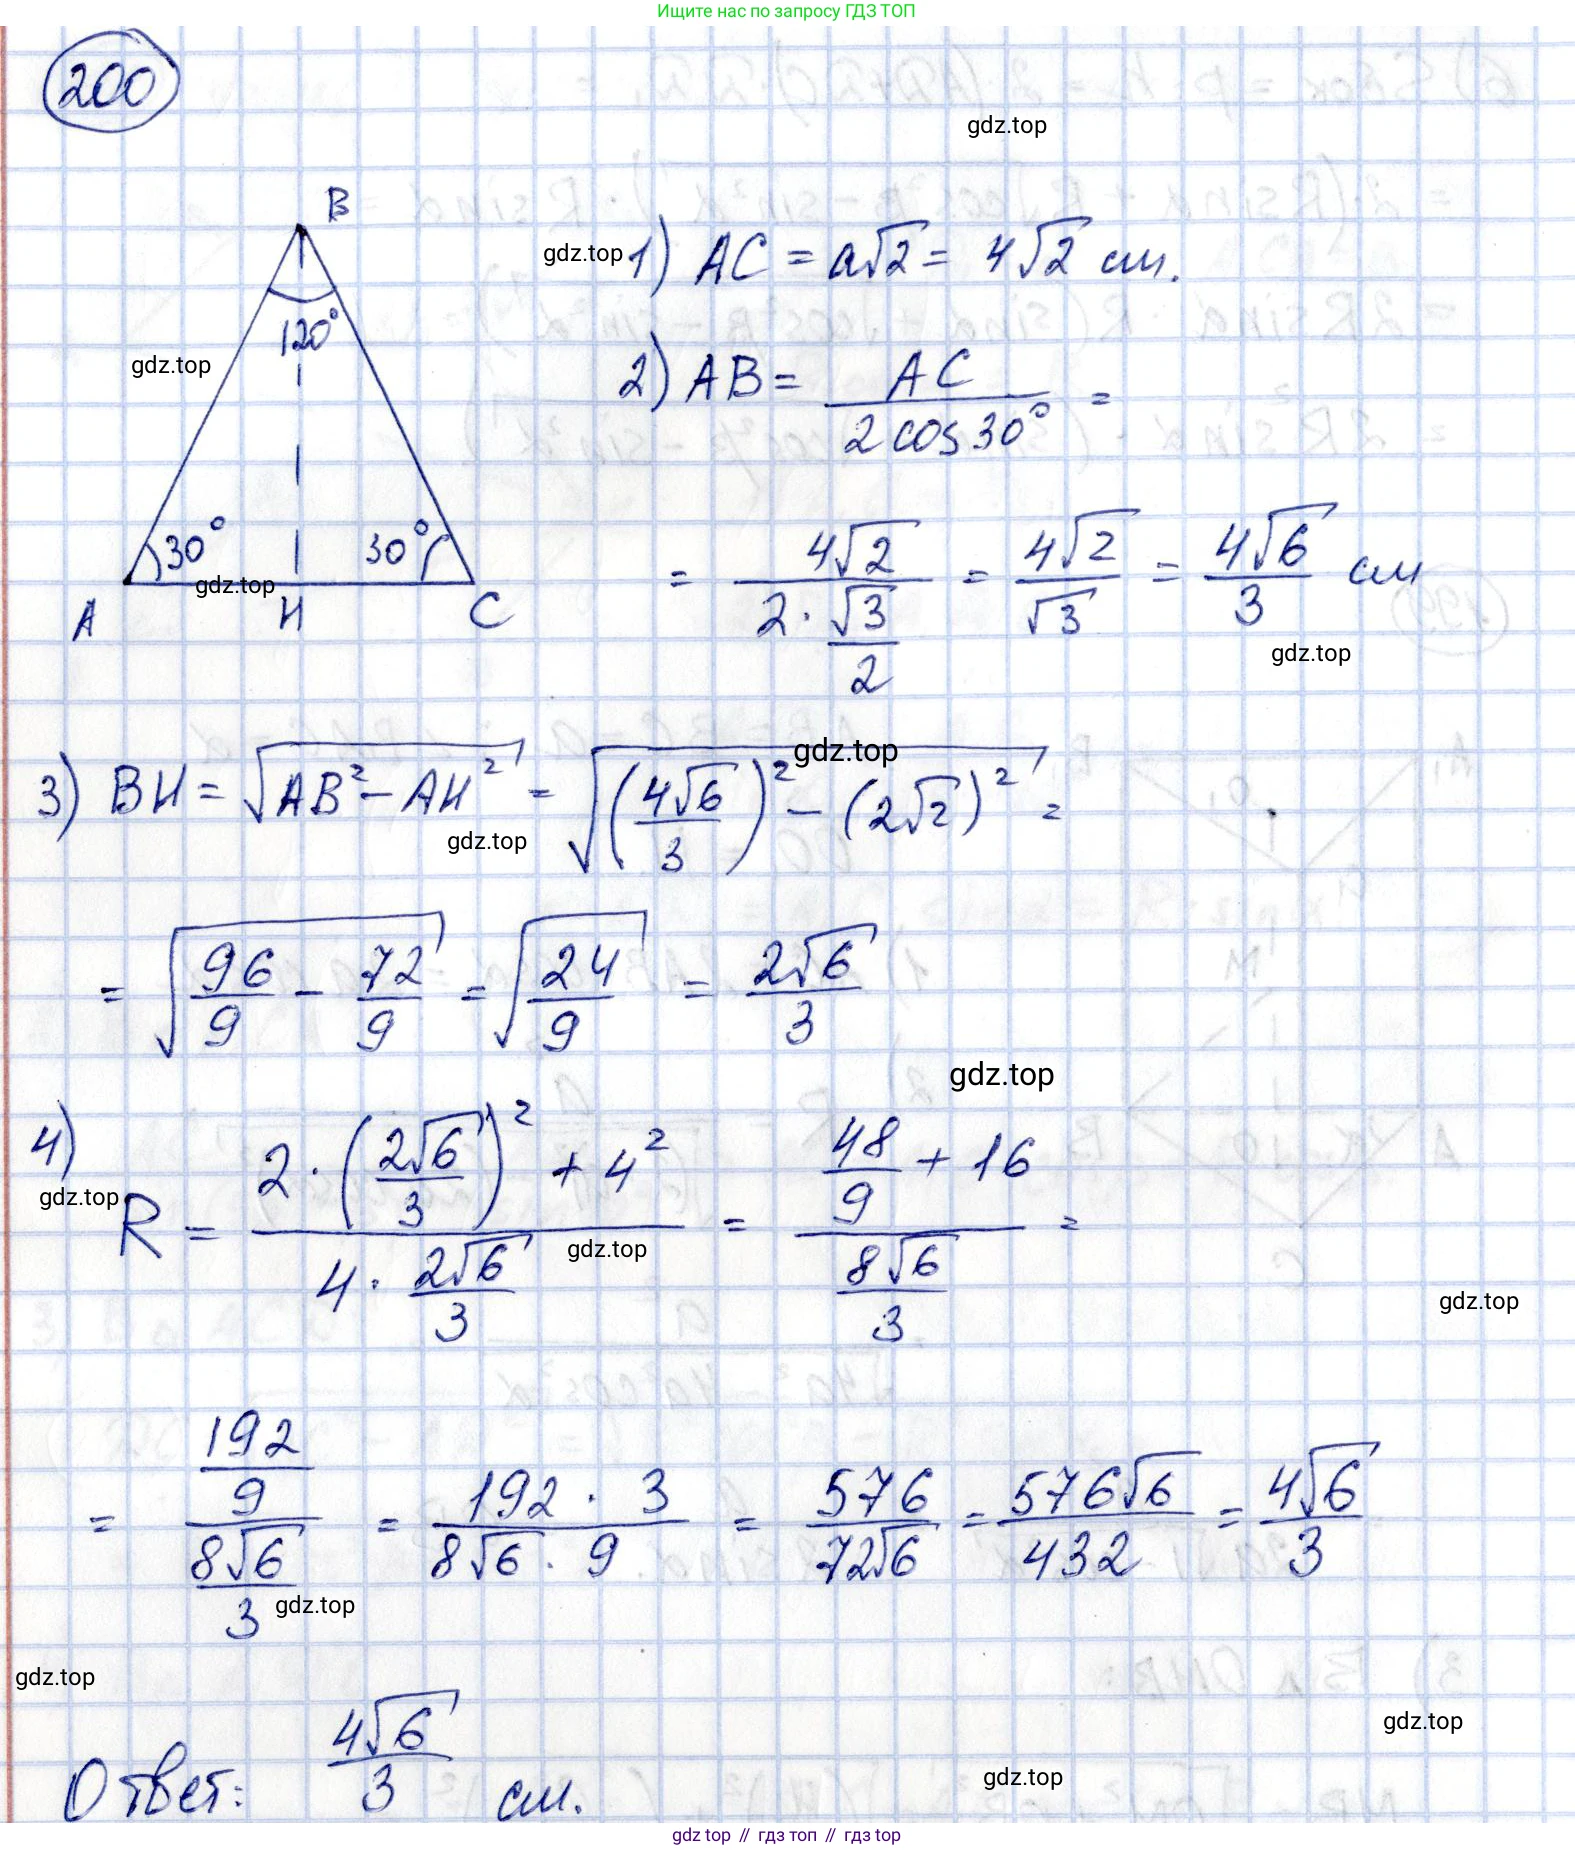 Ищите нас по запросу ГДЗ ТОП
200
gdz.top
B
120°
gdz.top
30° 30°
gdz.top
A H C
gdz.top 1) AC = a√2 = 4√2 см.
2) AB = AC / (2 cos 30°) =
= 4√2 / (2 · √3/2) = 4√2/√3 = 4√6/3 см
gdz.top
3) BH = √(AB² - AH²) = √((4√6/3)² - (2√2)²) =
gdz.top
gdz.top
= √(96/9 - 72/9) = √(24/9) = 2√6/3
gdz.top
4) R = (2 · (2√6/3)² + 4²) / (4 · 2√6/3) = (48/9 + 16) / (8√6/3) =
gdz.top
gdz.top
gdz.top
= (192/9) / (8√6/3) = (192 · 3) / (8√6 · 9) = 576 / 72√6 = 576√6 / 432 = 4√6/3
gdz.top
gdz.top
gdz.top
Ответ: 4√6/3 см.
gdz.top
gdz.top // гдз топ // гдз top